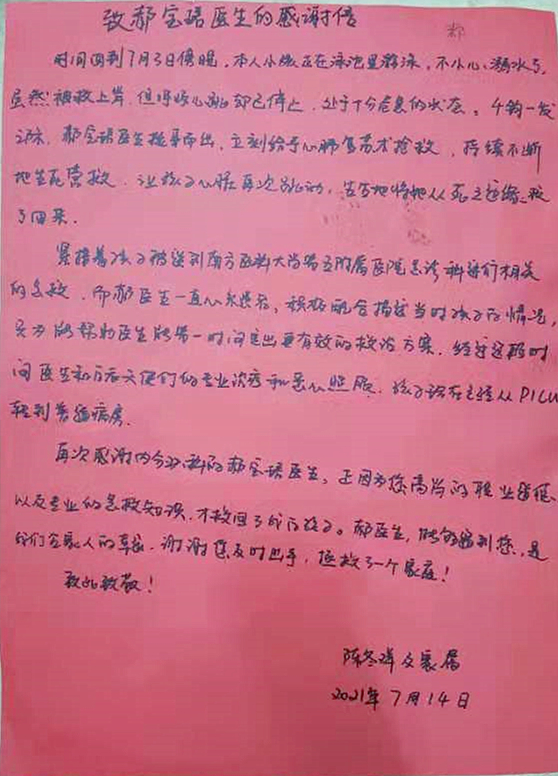 致郝宝珺医生的感谢信
时间回到7月3日傍晚，本人小孩正在泳池里游泳，不小心溺水了，
虽然被救上岸，但呼吸心跳都已停止，处于十分危急的状态。千钧一发
之际，郝宝珺医生挺身而出，立刻给予心肺复苏术抢救，持续不断
地生死营救，让孩子心脏再次跳动，生生地将他从死亡边缘救
了回来。
紧接着孩子被送到南方医科大学第五附属医院急诊科进行相关
的急救，而郝医生一直心系患者，积极配合描述当时孩子的情况，
只为能帮助医生能第一时间定出更有效的救治方案。经过这段时
间医生和白衣天使们的专业治疗和悉心照顾，孩子现在已经从PICU
转到普通病房。
再次感谢内分泌科的郝宝珺医生，正因为您高尚的职业道德
以及专业的急救知识，才救回了我们孩子。郝医生，能够遇到您，是
我们全家人的幸运，谢谢您及时出手，拯救了一个家庭！
致此致敬！
陈冬祥及家属
2021年7月14日